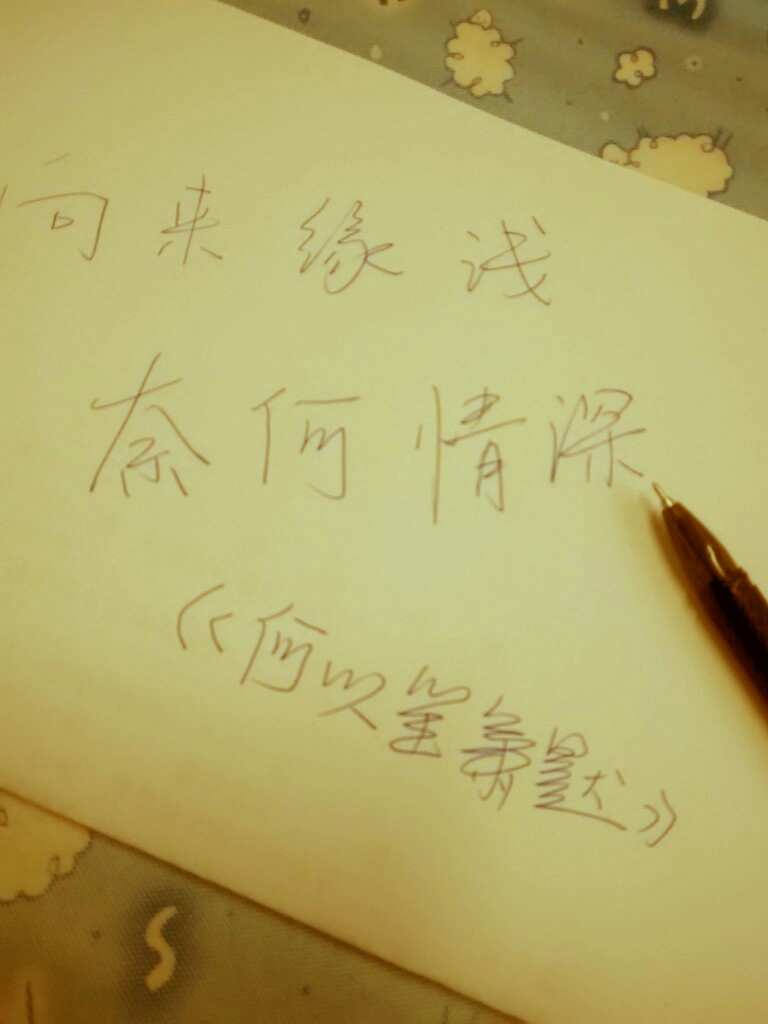 向来缘浅
奈何情深
《何以笙箫默》